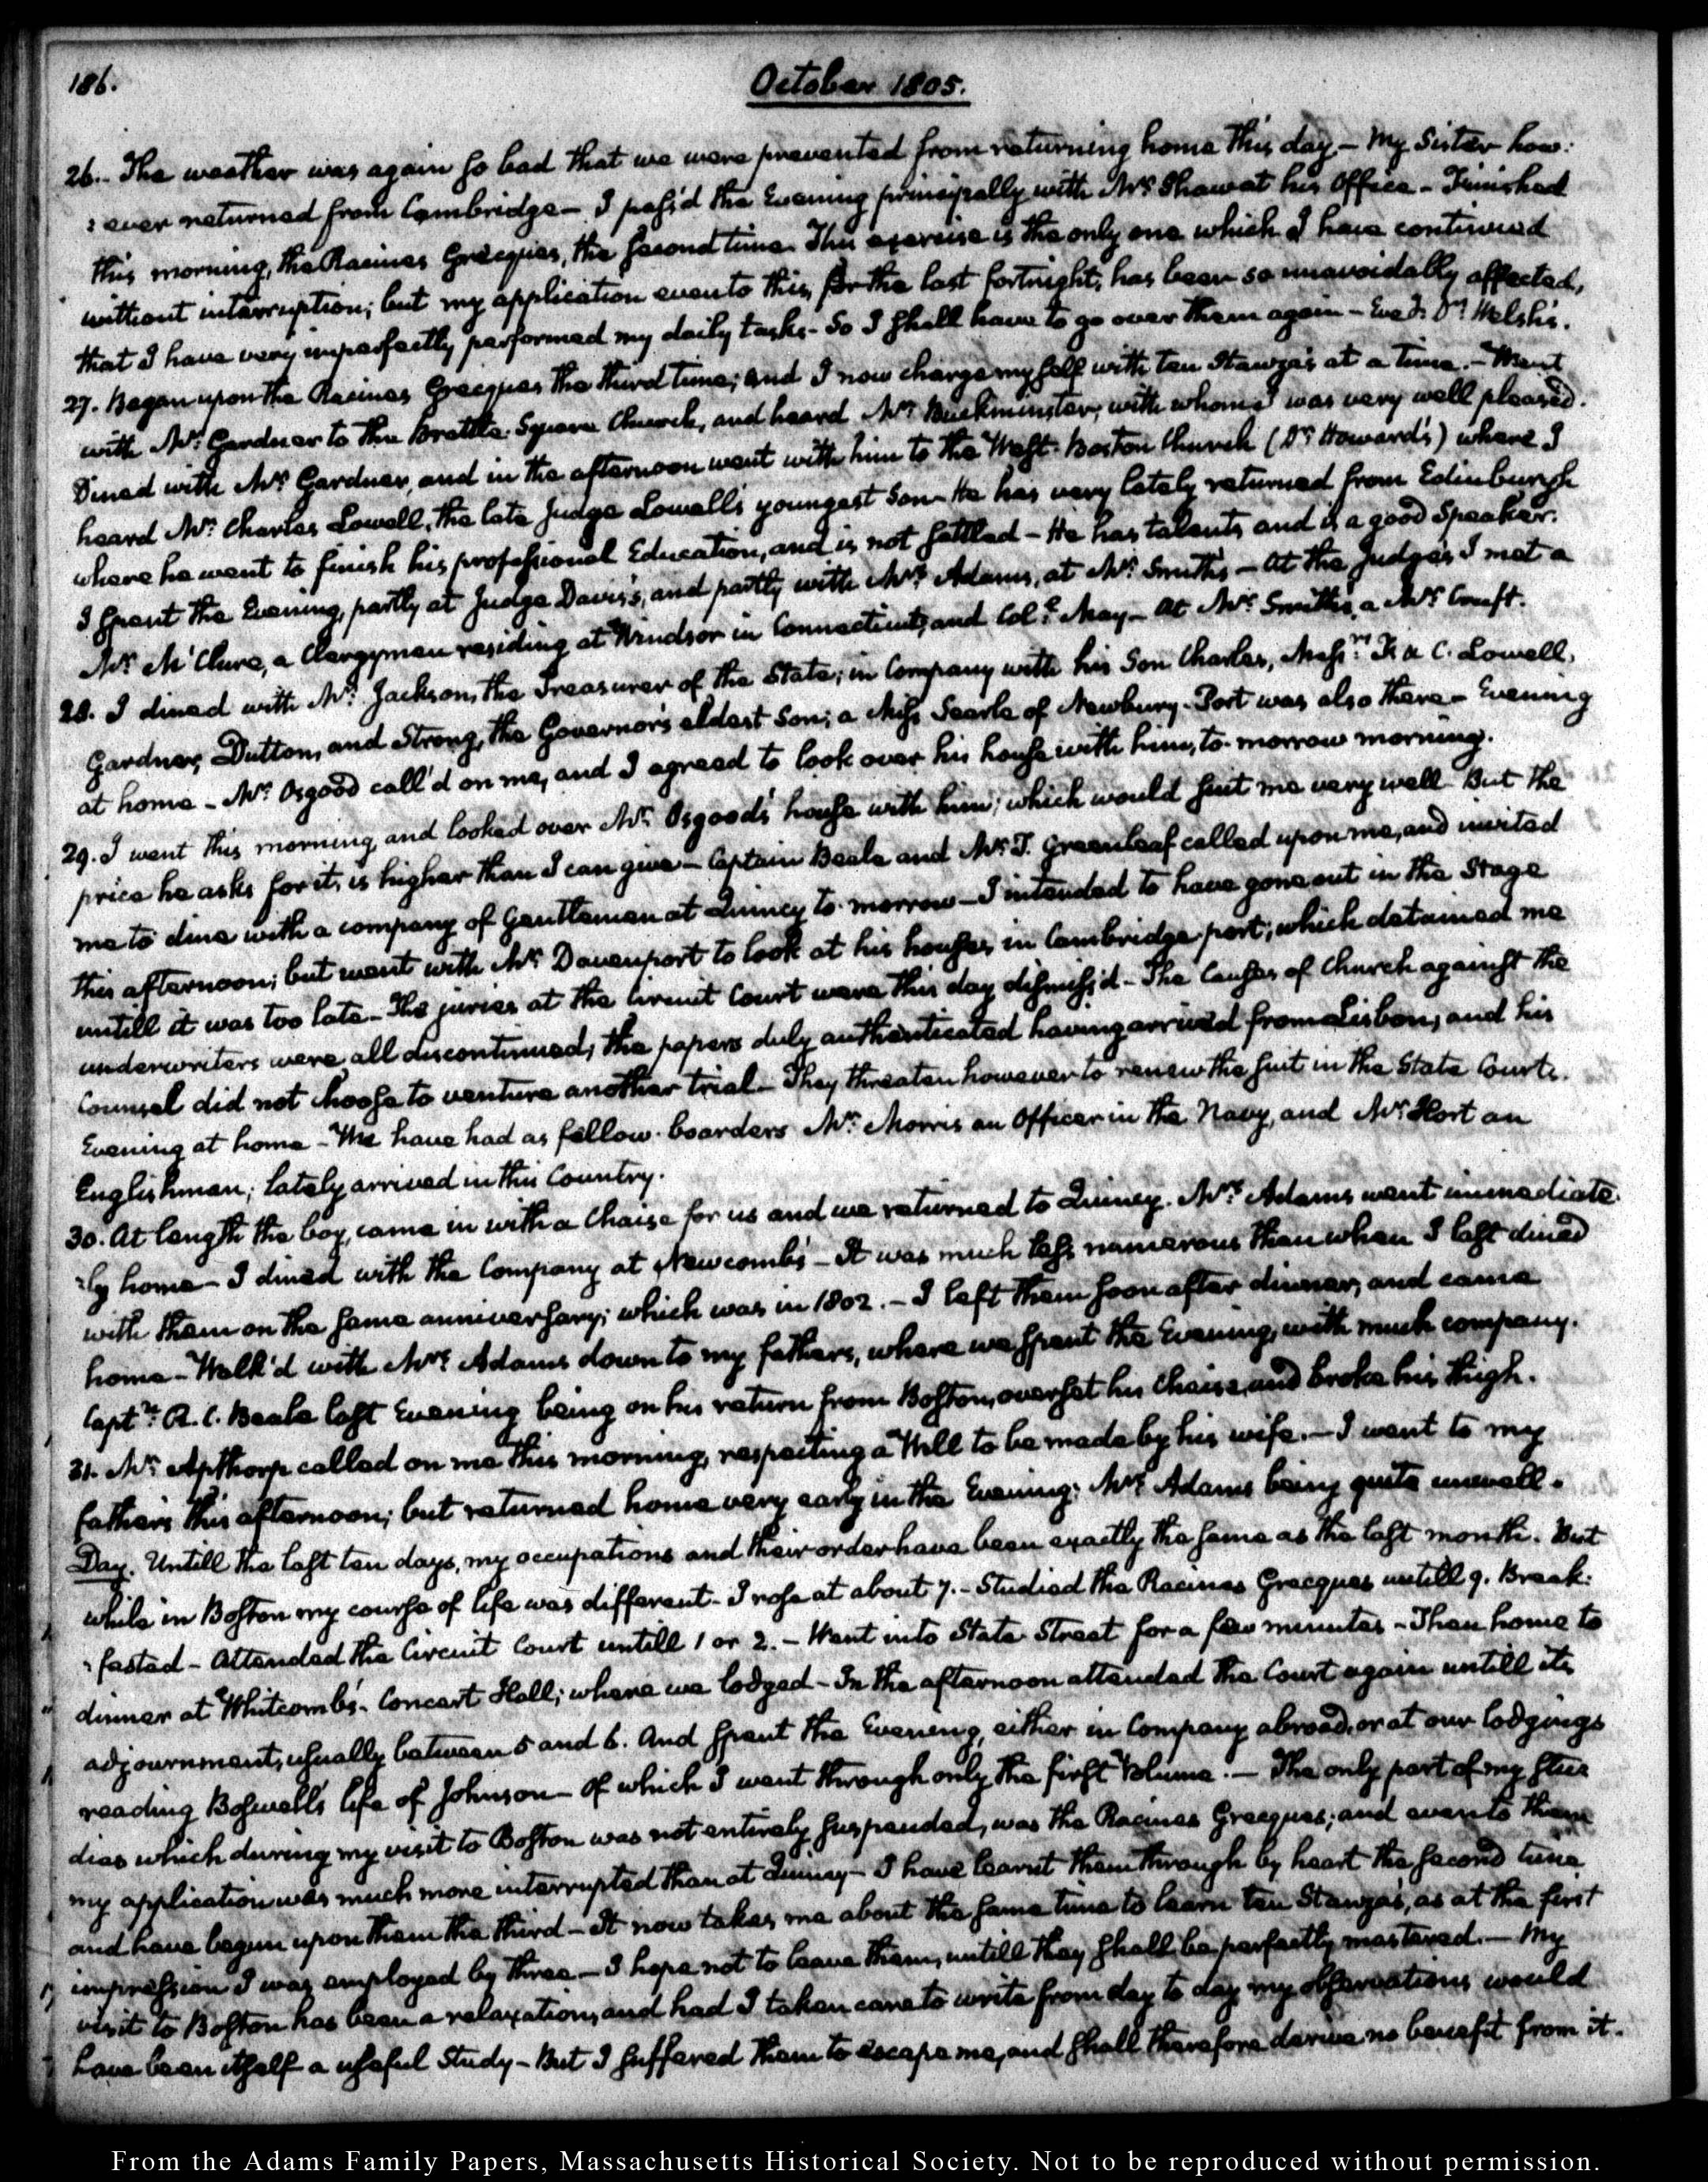 186.
October 1805.
26. The weather was again so bad that we were prevented from returning home this day – My Sister how:
:ever returned from Cambridge – I pass'd the Evening principally with Mr. Shaw at his Office – Finished
this morning, the Racines Grecques, the second time. This exercise is the only one which I have continued
without interruption; but my application even to this, for the last fortnight, has been so unavoidably affected,
that I have very imperfectly performed my daily tasks – So I shall have to go over them again – Eve. Dr. Welsh's.
27. Began upon the Racines Grecques the third time; and I now charge myself with ten Stanza's at a time. – Went
with Mr. Gardner to the Brattle-Square Church, and heard Mr. Buckminster, with whom I was very well pleased.
Dined with Mr. Gardner, and in the afternoon went with him to the West-Boston Church (Dr. Howard's) where I
heard Mr. Charles Lowell, the late Judge Lowell's youngest Son – He has very lately returned from Edinburgh
where he went to finish his professional Education, and is not settled – He has talents and is a good Speaker.
I spent the Evening, partly at Judge Davis's, and partly with Mrs. Adams, at Mr. Smith's – At the Judge's I met a
Mr. McClure, a Clergyman residing at Windsor in Connecticut, and Coll. May – At Mr. Smith's, a Mr. Cruft.
28. I dined with Mr. Jackson, the Treasurer of the State; in Company with his Son Charles, Messrs. F. & C. Lowell,
Gardner, Dutton, and Strong, the Governor's eldest Son; a Miss Searle of Newbury-Port was also there – Evening
at home – Mr. Osgood call'd on me, and I agreed to look over his house with him, to-morrow morning.
29. I went this morning and looked over Mr. Osgood's house with him; which would suit me very well – But the
price he asks for it, is higher than I can give – Captain Beale and Mr. T. Greenleaf called upon me, and invited
me to dine with a company of Gentlemen at Quincy to-morrow – I intended to have gone out in the Stage
this afternoon; but went with Mr. Davenport to look at his houses in Cambridge-port; which detained me
untill it was too late – The juries at the Circuit Court were this day dismiss'd – The Causes of Church against the
underwriters were all discontinued; the papers duly authenticated having arrived from Lisbon, and his
Counsel did not choose to venture another trial – They threaten however to renew the suit in the State Courts.
Evening at home – We have had as fellow-boarders Mr. Morris an Officer in the Navy, and Mr. Hort an
Englishman; lately arrived in this Country.
30. At length the boy, came in with a Chaise for us and we returned to Quincy. Mrs. Adams went immediate
:ly home – I dined with the Company at Newcomb's – It was much less numerous than when I last dined
with them on the same anniversary; which was in 1802. – I left them soon after dinner, and came
home – Walk'd with Mrs. Adams down to my father's, where we spent the Evening, with much company.
Captn. R. C. Beale last Evening being on his return from Boston, overset his Chaise, and broke his thigh.
31. Mr. Apthorp called on me this morning, respecting a Will to be made by his wife. – I went to my
father's this afternoon; but returned home very early in the Evening: Mrs. Adams being quite unwell.
Day. Untill the last ten days, my occupations and their order have been exactly the same as the last month. But
while in Boston my course of life was different – I rose at about 7. – Studied the Racines Grecques untill 9. Break:
:fasted – Attended the Circuit Court untill 1 or 2. – Went into State Street for a few minutes – Then home to
dinner at Whitcomb's – Concert Hall; where we lodged – In the afternoon attended the Court again untill its
adjournment, usually between 5 and 6. And spent the Evening, either in Company abroad, or at our lodgings
reading Boswell's life of Johnson – of which I went through only the first Volume. – The only part of my stu
dies which during my visit to Boston was not entirely suspended, was the Racines Grecques; and even to them
my application was much more interrupted than at Quincy – I have learnt them through by heart the second time
and have begun upon them the third – It now takes me about the same time to learn ten Stanza's, as at the first
impression I was employed by three – I hope not to leave them, untill they shall be perfectly mastered. – My
visit to Boston has been a relaxation, and had I taken care to write from day to day my observations would
have been itself a useful Study – But I suffered them to escape me, and shall therefore derive no benefit from it.
From the Adams Family Papers, Massachusetts Historical Society. Not to be reproduced without permission.